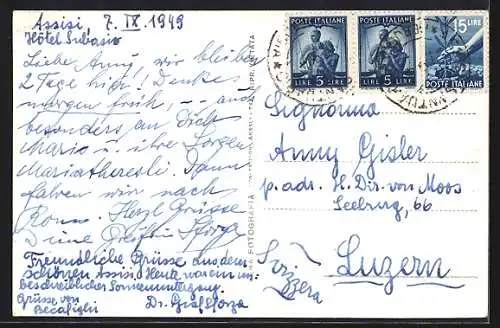 Assisi 7. IX. 1949
Hôtel Subasio
Liebe Anny, wir bleiben
2 Tage hier! Denke
morgen früh, -- an
besonders an Dich
Mario u. ihre Sorgen
Mariatheresli. Dann
fahren wir nach
Rom. Herzl Grüsse
Deine
Freundliche Grüsse aus dem
schönen Assisi. Heute war ein un-
beschreiblicher Sonnenuntergang.
Grüsse von
Becafighi
Dr. Graf Sforza
FOTOGRAFIA
POSTE ITALIANE
LIRE 5 LIRE
POSTE ITALIANE
LIRE 5 LIRE
15 LIRE
Signorina
Anny Gisler
p. adr. H. Dir. von Moos
Seeburg, 66
Luzern
Svizzera